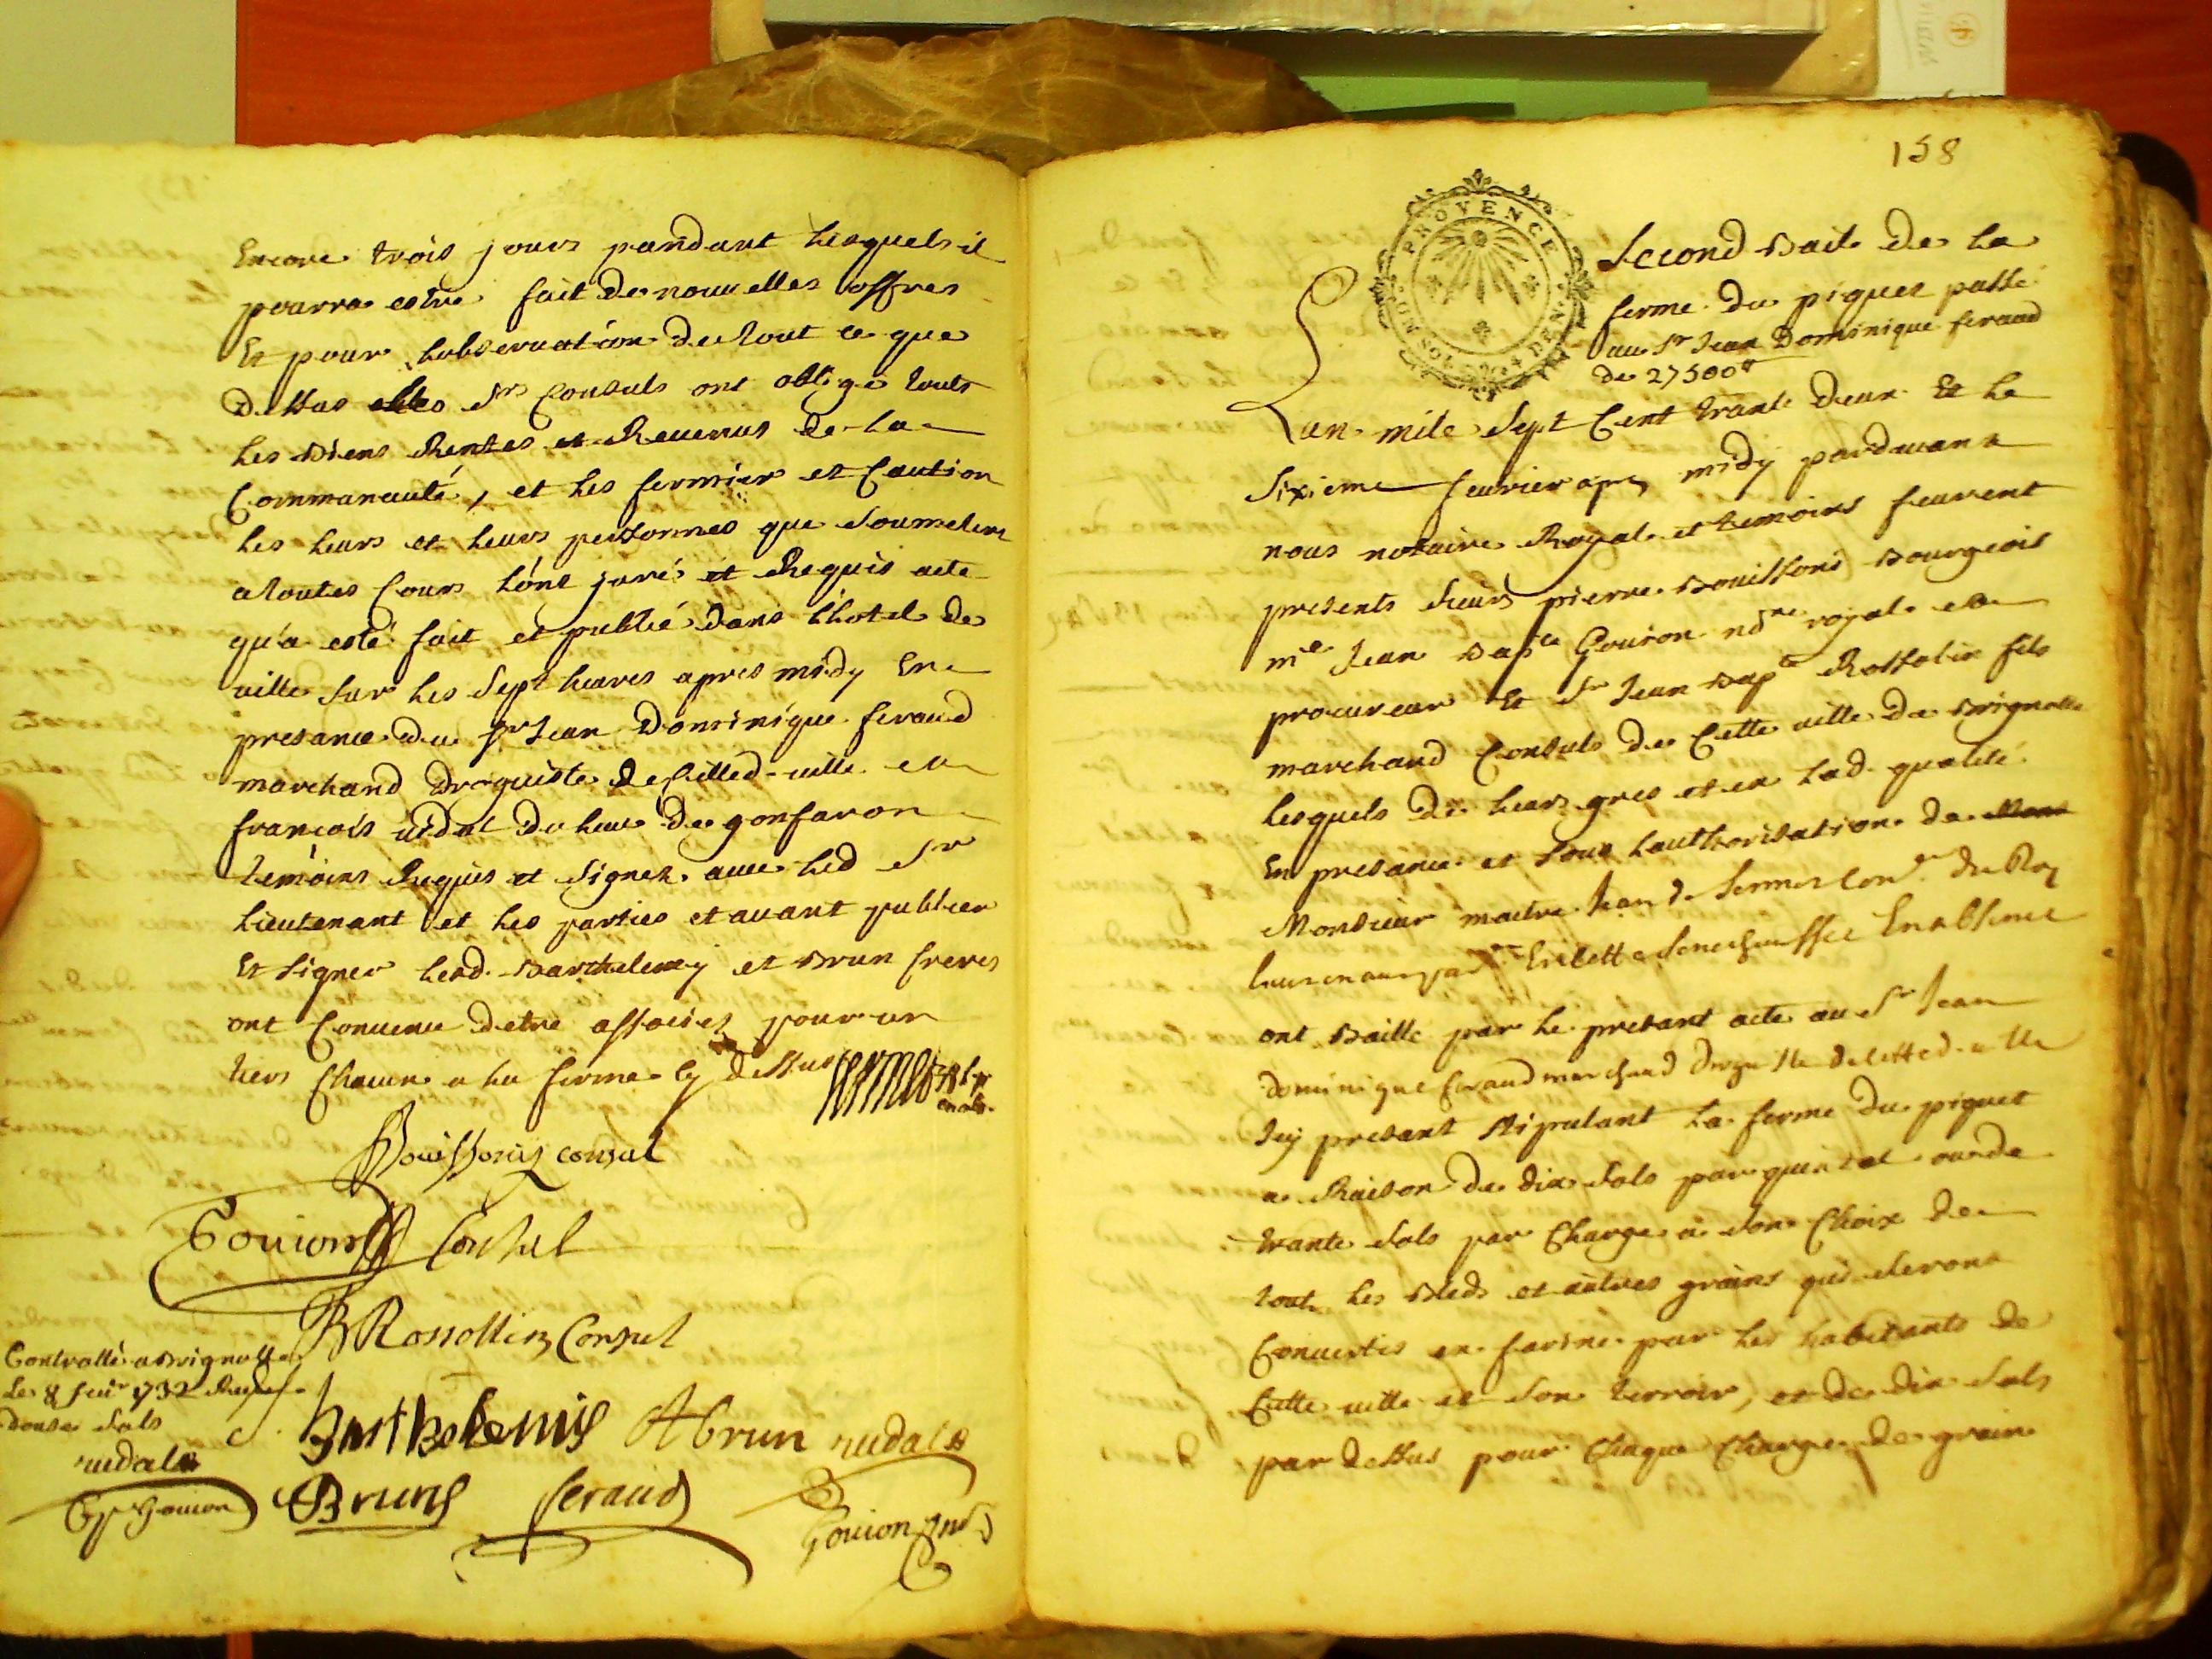 Encore trois jours pandant lesquels il
pourra estre fait de nouvelles offres
Et pour l'observation de tout ce que
dessus lesd Srs Consuls ont obligé touts
les biens Rentes et Revenus de la
Communauté, et les fermier et Caution
les leurs et leurs personnes que soumetent
a toutes Cours l'ont juré et Requis acte
qu'a esté fait et publié dans l'hotel de
ville sur les sept heures apres midy En
presance du Sr Jean Dominique feraud
marchand droguiste de cetted. ville et
francois vidal du lieu de gonfaron
temoins Requis et signez avec led Sr
lieutenant et les parties et avant publier
Et signer lesd. Barthelemy et Brun freres
ont Convenu detre associes pour un
tiers Chacun a la ferme cy dessus
Bouissony consul
Goujon Consul
JB Rossollin Consul
Controllé a Brignolle
Le 8 fevr 1732
douze sols
vidal
Goujon
Barthelemy A brun vidal
Brun feraud
Goujon
158
PROVENCE
Second Bail de la
ferme du piquet passé
au Sr Jean Dominique feraud
de 27500
L'an mile Sept Cent trante deux Et le
Sixieme fevrier apres midy pardavant
nous notaire Royal et temoins feurent
presents sieurs pierre Bouissony Bourgeois
me Jean Bapte Goujon nore royal et
procureur Et Sr Jean Bapte Rossolin fils
marchand Consuls de Cette ville de Brignolle
lesquels de leurs gres et en lad. qualité
En presance et sous l'authorisation de
Monsieur maitre Jean de Sermet Conr du Roy
En absence
ont Baillé par le presant acte au Sr Jean
dominique feraud marchand droguiste de cetted. ville
Icy presant stipulant la ferme du piquet
a Raison de dix sols par quintal ou de
trante sols par Charge à son Choix de
tout les Bleds et autres grains qui seront
Convertis en farine par les habitants de
Cette ville et son terroir, et de dix sols
par dessus pour Chaque Charge de grain